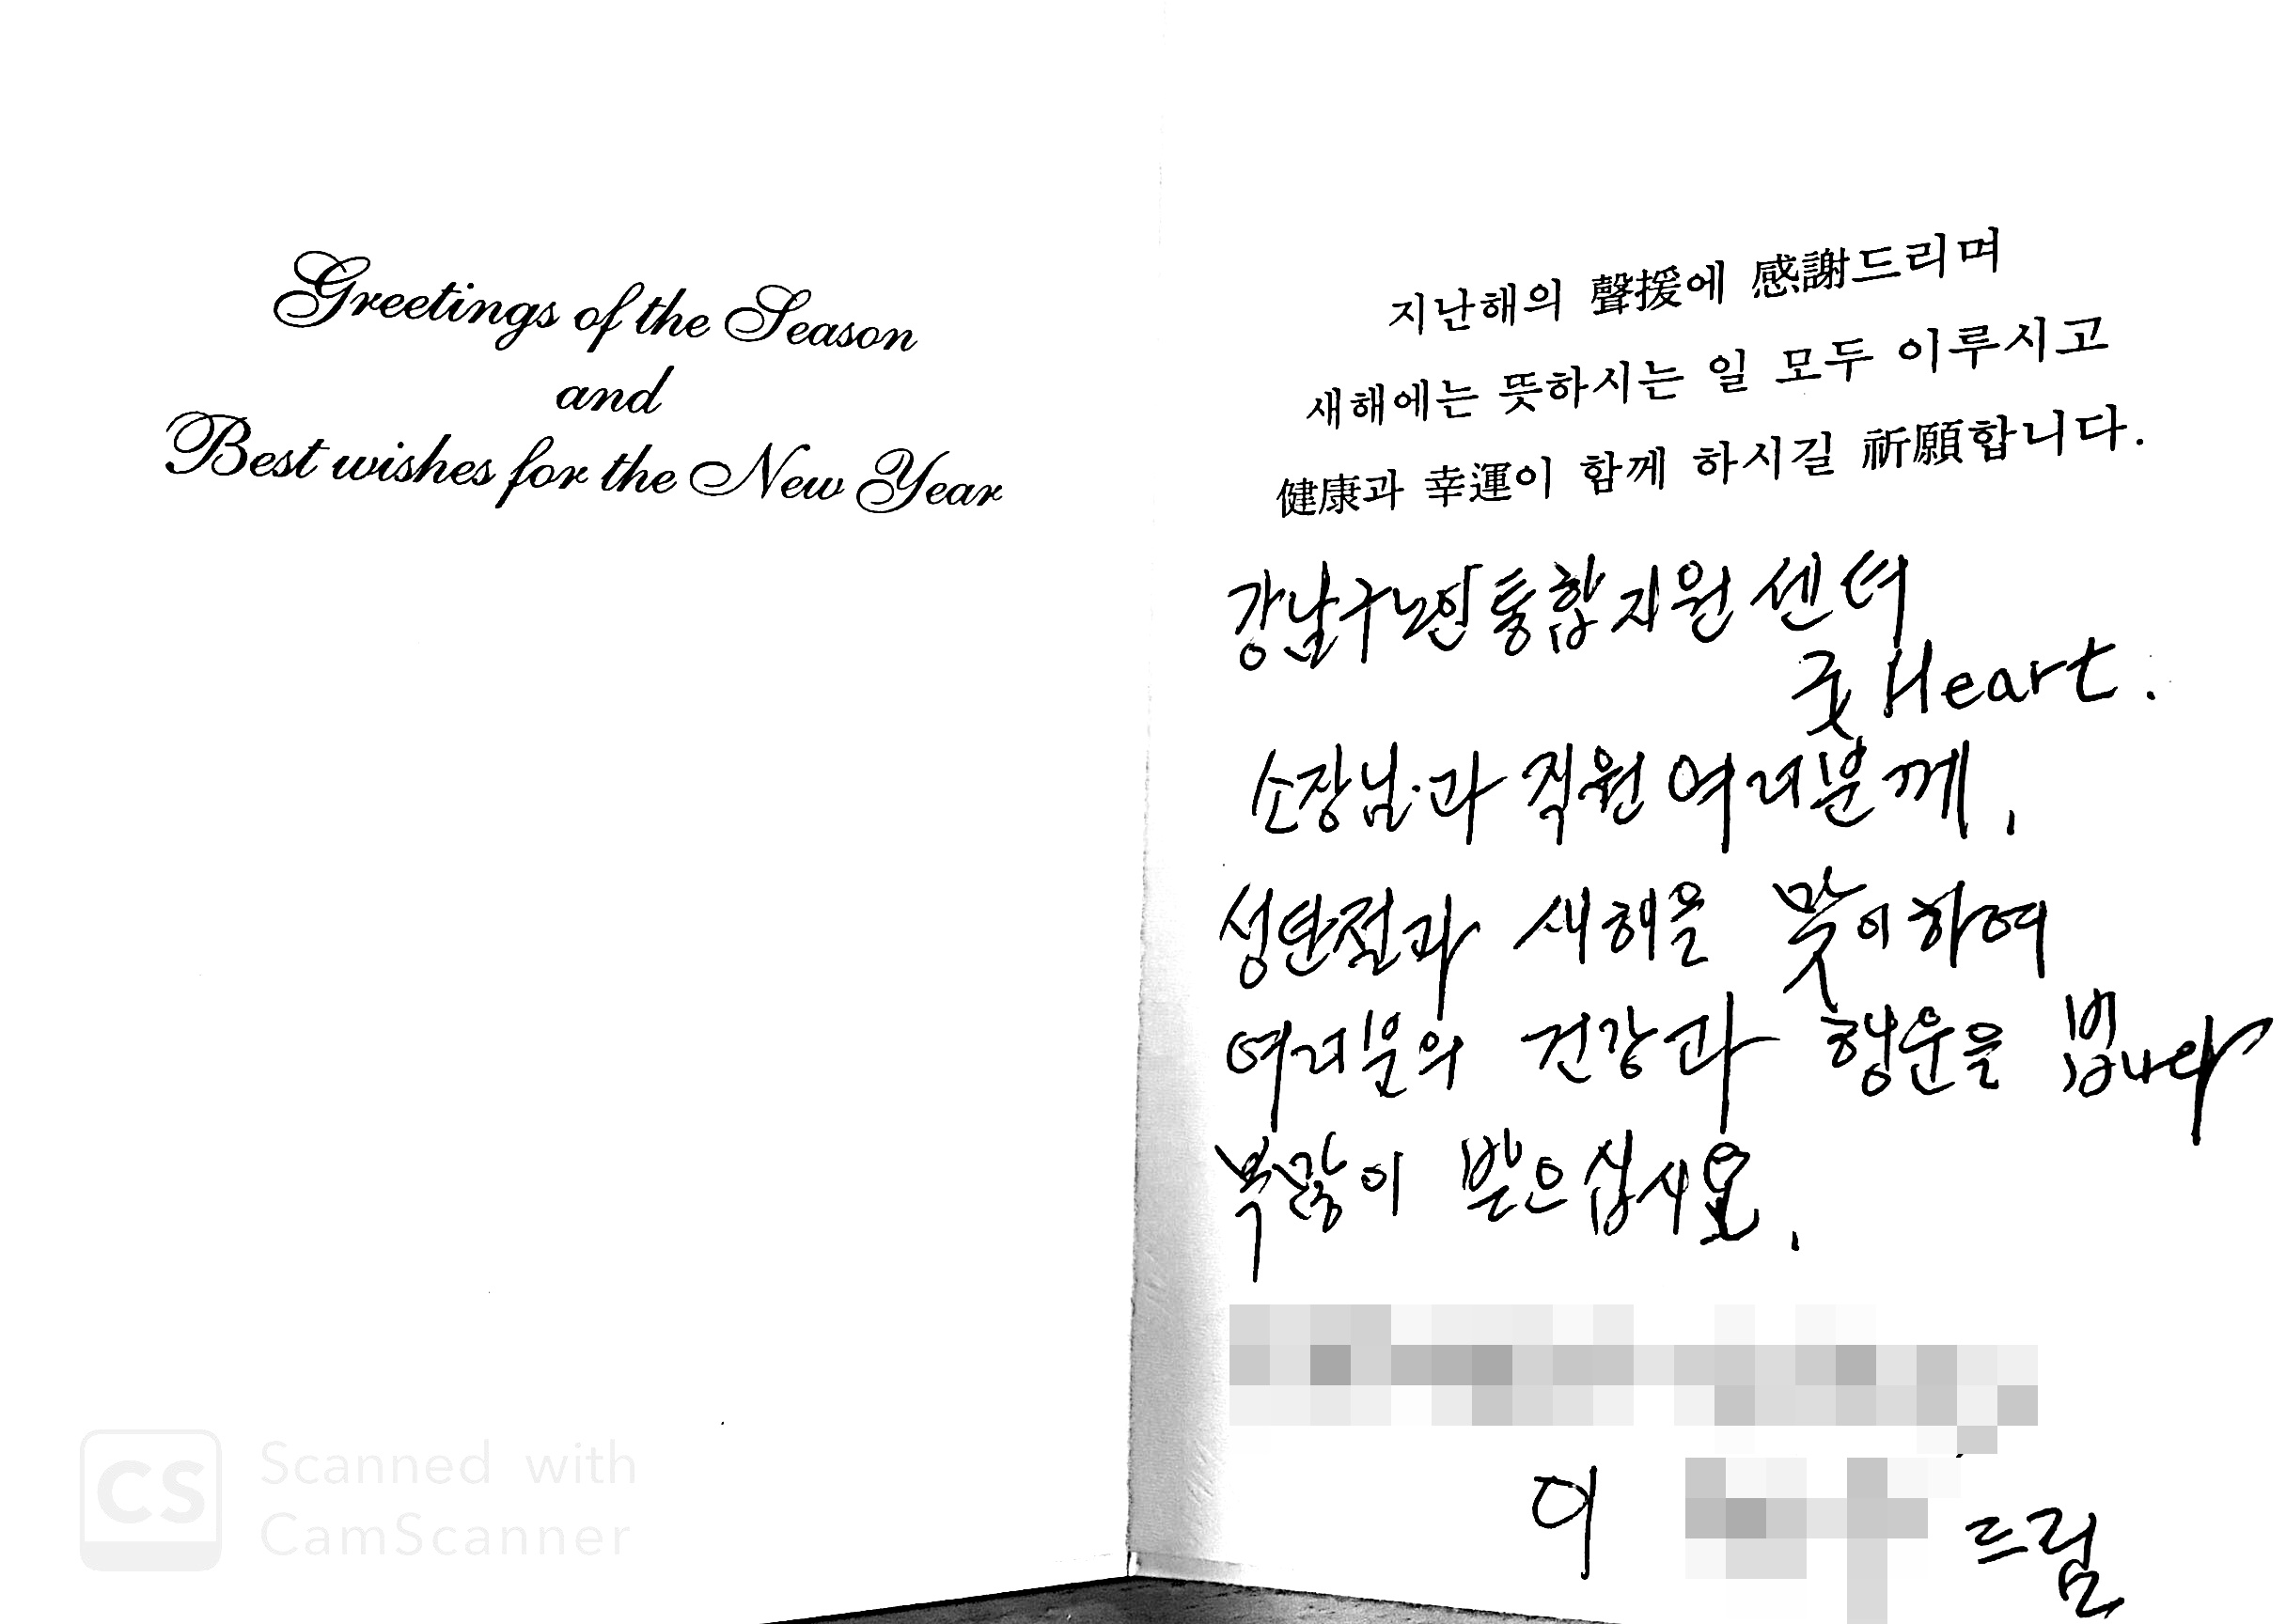 Greetings of the Season
and
Best wishes for the New Year
지난해의 聲援에 感謝드리며
새해에는 뜻하시는 일 모두 이루시고
健康과 幸運이 함께 하시길 祈願합니다.
강남구노인통합지원센터
굿 Heart.
소장님과 직원 여러분께,
성탄절과 새해를 맞이하여
여러분의 건강과 행운을 빕니다
복많이 받으십시요.
이
드림
CS
Scanned with
CamScanner